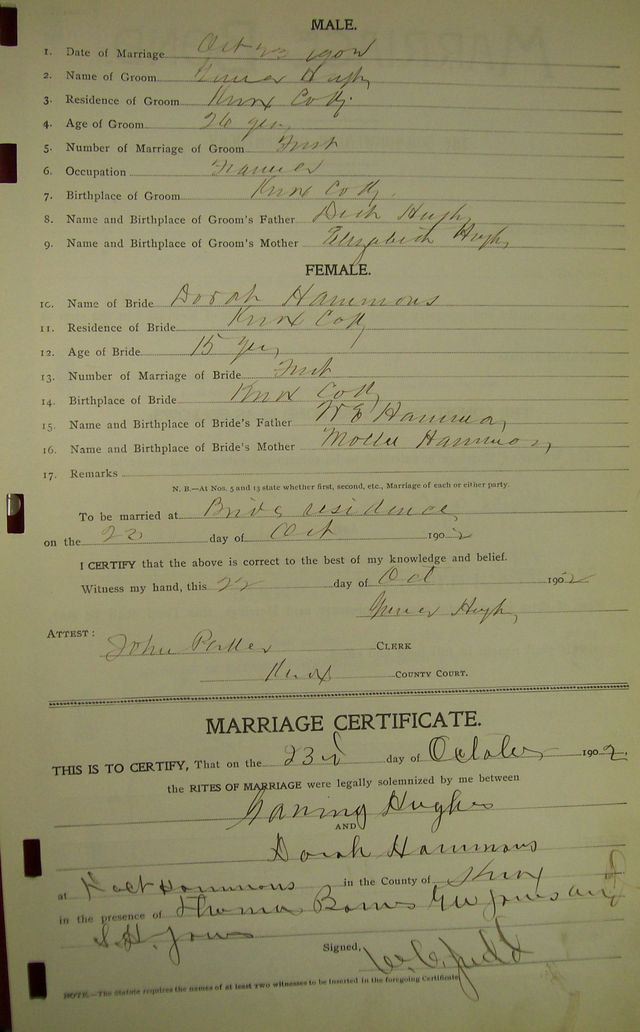 MALE.
1. Date of Marriage Oct 23 1902
2. Name of Groom Hughs
3. Residence of Groom Knox Co Ky.
4. Age of Groom 26 yrs
5. Number of Marriage of Groom First
6. Occupation Farmer
7. Birthplace of Groom Knox Co Ky.
8. Name and Birthplace of Groom's Father Dick Hughs
9. Name and Birthplace of Groom's Mother Elizabeth Hughs
FEMALE.
10. Name of Bride Dorah Hammons
11. Residence of Bride Knox Co Ky
12. Age of Bride 15 yrs
13. Number of Marriage of Bride First
14. Birthplace of Bride Knox Co Ky
15. Name and Birthplace of Bride's Father W E Hammons
16. Name and Birthplace of Bride's Mother Mollie Hammons
17. Remarks
N. B.—At Nos. 5 and 13 state whether first, second, etc., Marriage of each or either party.
To be married at Brids residence
on the day of Oct 1902
I CERTIFY that the above is correct to the best of my knowledge and belief.
Witness my hand, this 22 day of Oct 1902
Hughs
ATTEST: John Parker CLERK
Knox COUNTY COURT.
MARRIAGE CERTIFICATE.
THIS IS TO CERTIFY, That on the 23d day of October 1902.
the RITES OF MARRIAGE were legally solemnized by me between
Hughes
AND
Dorah Hammons
at Hammons in the County of Knox
in the presence of Thomas G W Jones and
S. H. Jones
Signed, Judd
NOTE.—The Statute requires the names of at least two witnesses to be inserted in the foregoing Certificate.